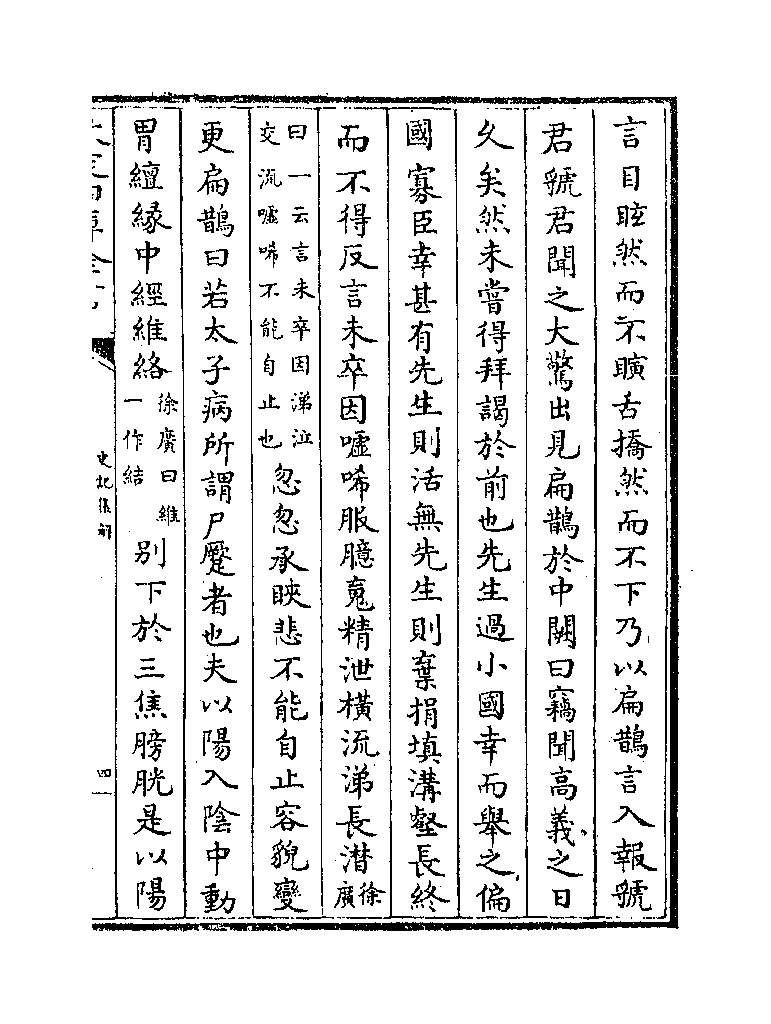 言目眩然而不瞚舌撟然而不下乃以扁鵲言入報虢
君虢君聞之大驚出見扁鵲於中闕曰竊聞高義之日
久矣然未嘗得拜謁於前也先生過小國幸而舉之偏
國寡臣幸甚有先生則活無先生則棄捐填溝壑長終
而不得反言未卒因噓唏服臆䰟精泄橫流涕長潸徐廣
曰一云言未卒因涕泣交流噓唏不能自止也忽忽承䀹悲不能自止容貌變
更扁鵲曰若太子病所謂尸蹷者也夫以陽入陰中動
胃繵緣中經維絡徐廣曰維一作結别下於三焦膀胱是以陽
史記集解
四